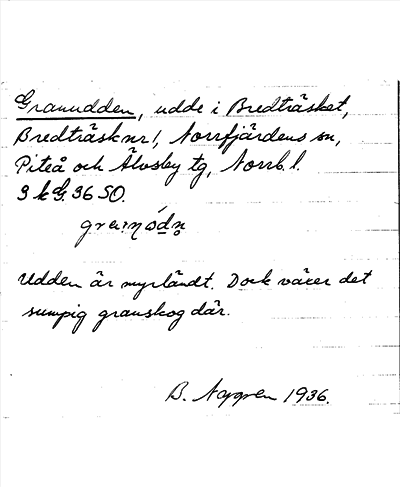 Granudden, udde i Bredträsket,
Bredträsk nr 1, Norrfjärdens sn,
Piteå och Älvsby tg, Norrb. l.
9 k G. 36 SO.
Udden är myrländt. Dock växer det
sumpig granskog där.
B. Nygren 1936.